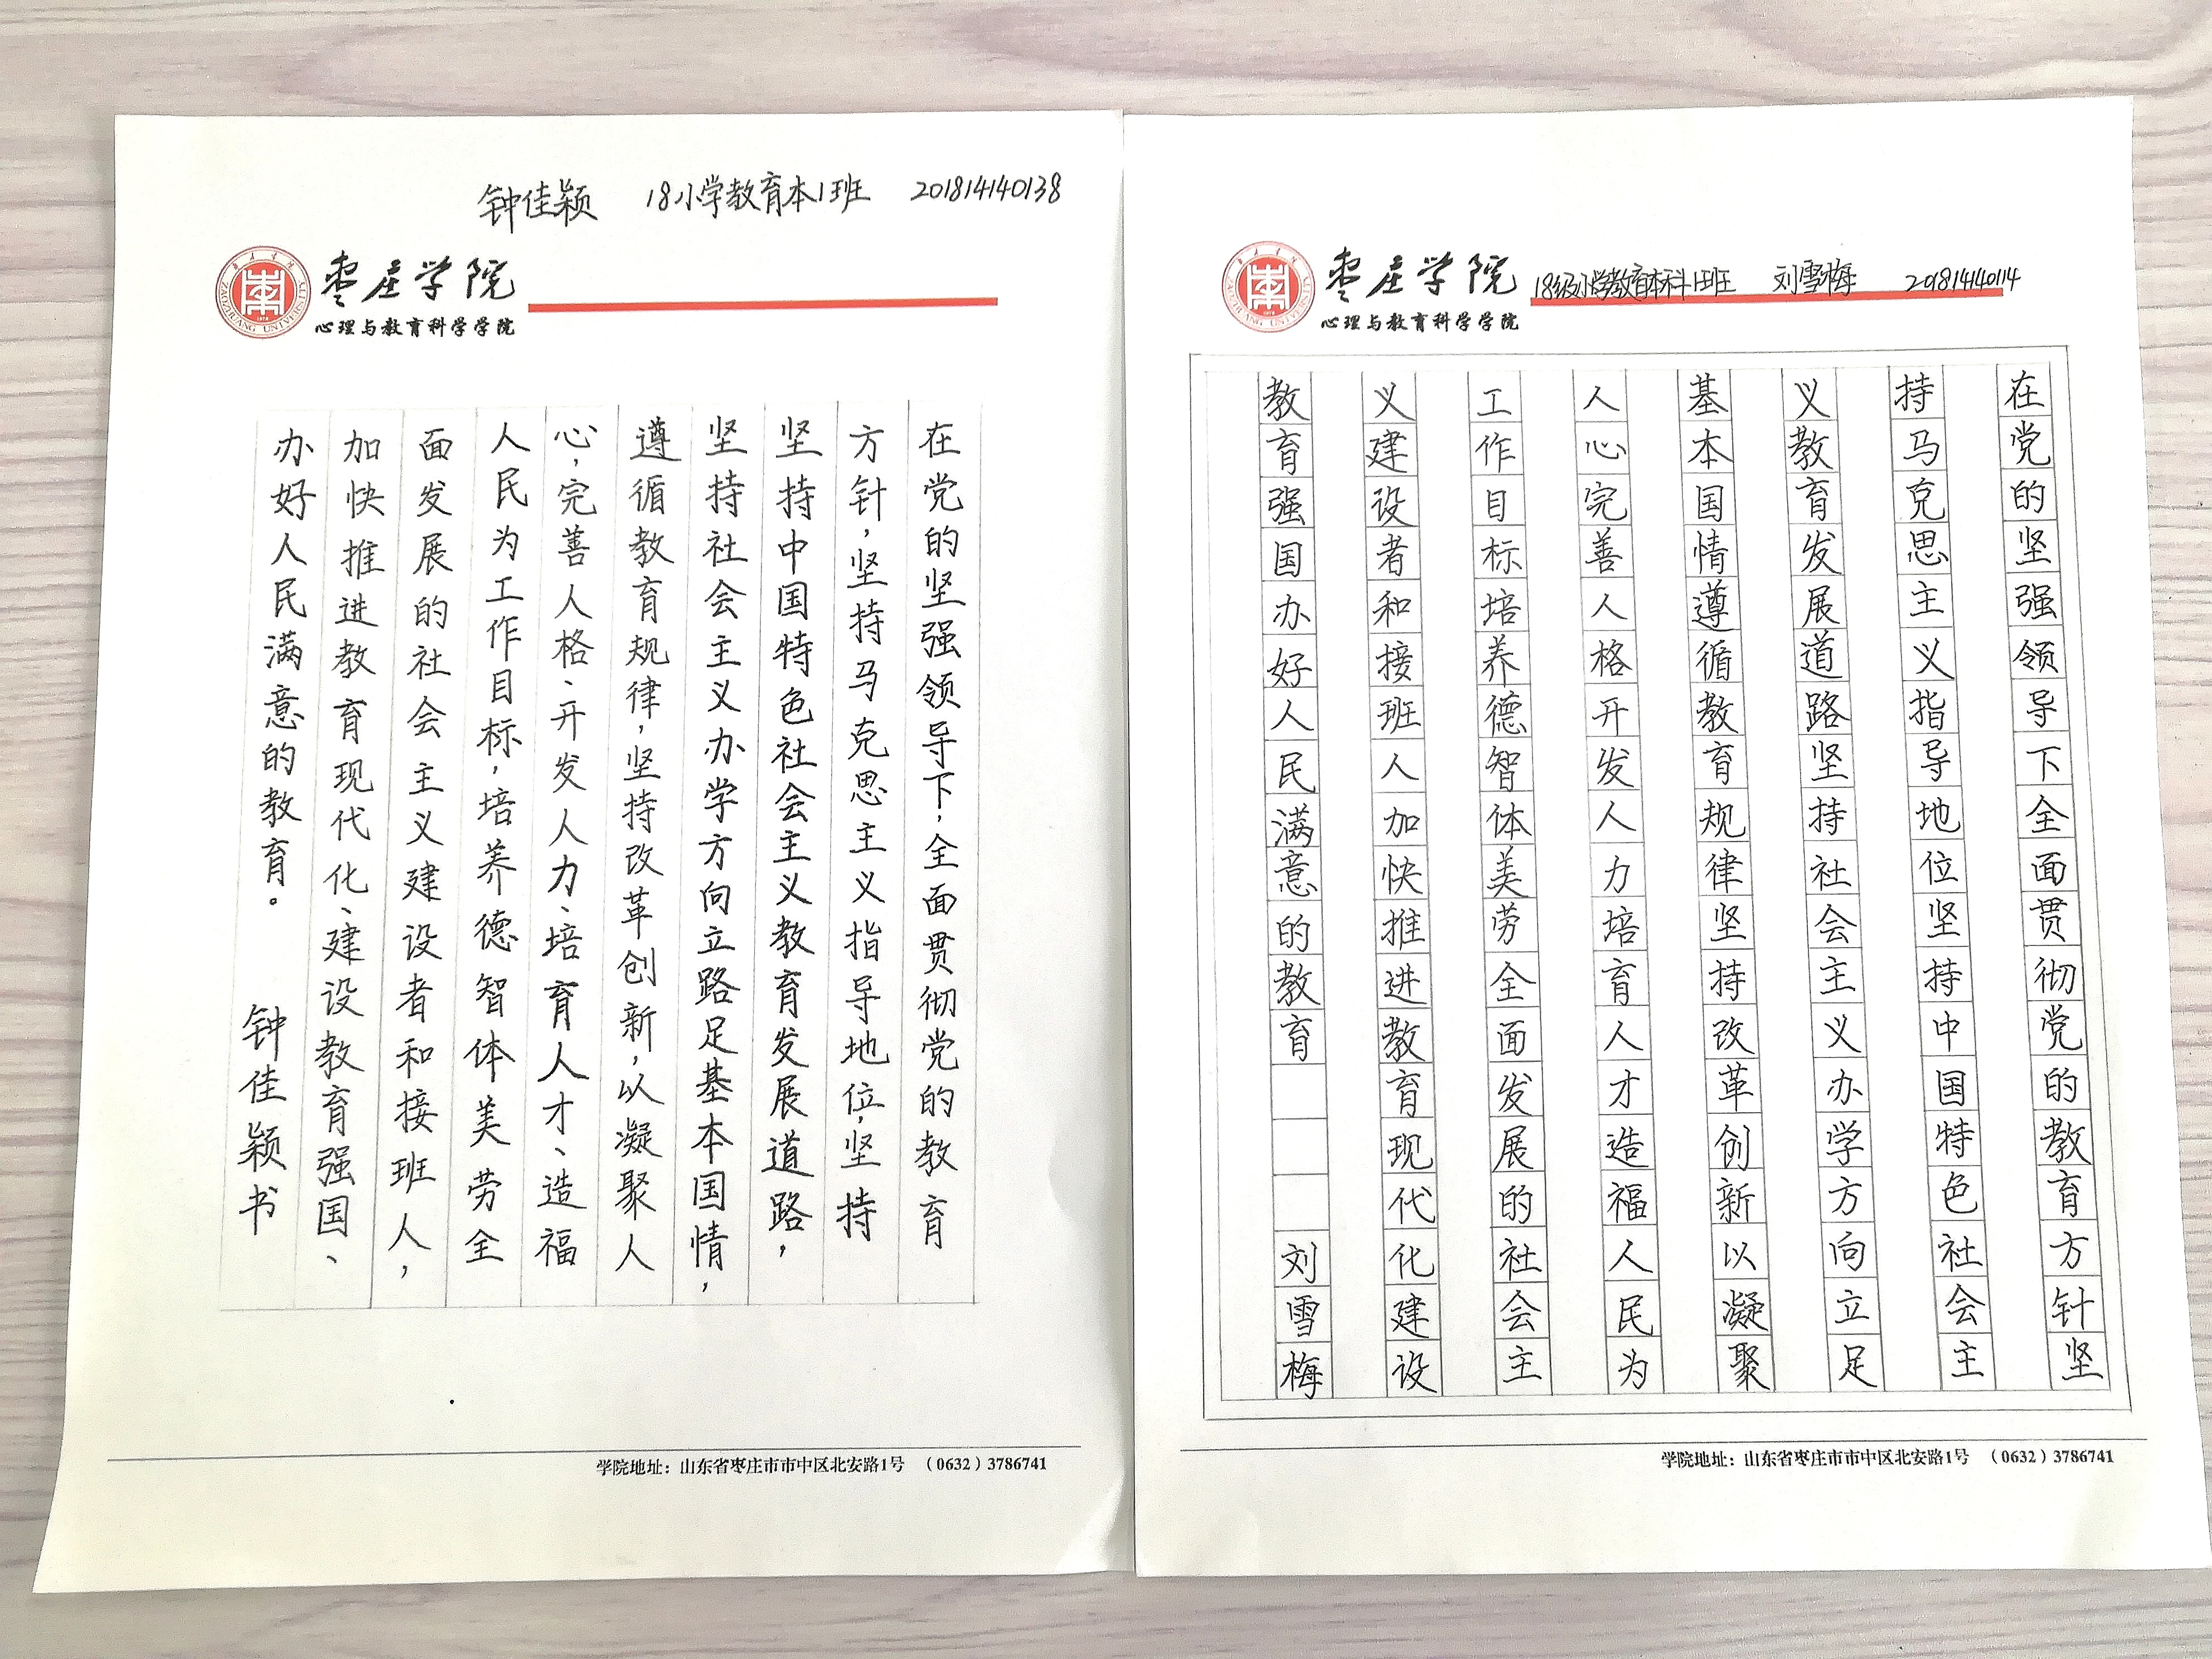 钟佳颖 18小学教育本1班 201814140138
枣庄学院
心理与教育科学学院
在党的坚强领导下，全面贯彻党的教育
方针，坚持马克思主义指导地位，坚持
坚持中国特色社会主义教育发展道路，
坚持社会主义办学方向立路足基本国情，
遵循教育规律，坚持改革创新，以凝聚人
心，完善人格、开发人力、培育人才、造福
人民为工作目标，培养德智体美劳全
面发展的社会主义建设者和接班人，
加快推进教育现代化、建设教育强国、
办好人民满意的教育。 钟佳颖书
学院地址：山东省枣庄市市中区北安路1号 （0632）3786741
枣庄学院 18级小学教育本科1班 刘雪梅 201814140114
心理与教育科学学院
在党的坚强领导下全面贯彻党的教育方针坚
持马克思主义指导地位坚持中国特色社会主
义教育发展道路坚持社会主义办学方向立足
基本国情遵循教育规律坚持改革创新以凝聚
人心完善人格开发人力培育人才造福人民为
工作目标培养德智体美劳全面发展的社会主
义建设者和接班人加快推进教育现代化建设
教育强国办好人民满意的教育 刘雪梅
学院地址：山东省枣庄市市中区北安路1号 （0632）3786741